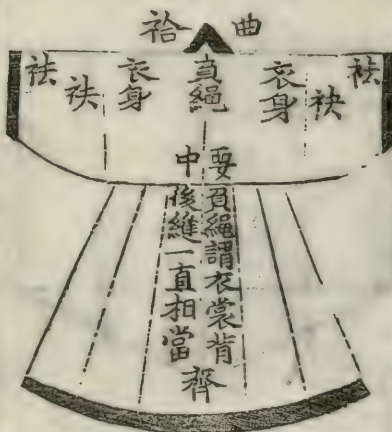 曲袷
袪
袂
衣身
負繩
衣身
袂
袪
要中
負繩謂衣裳背
後縫一直相當
齊